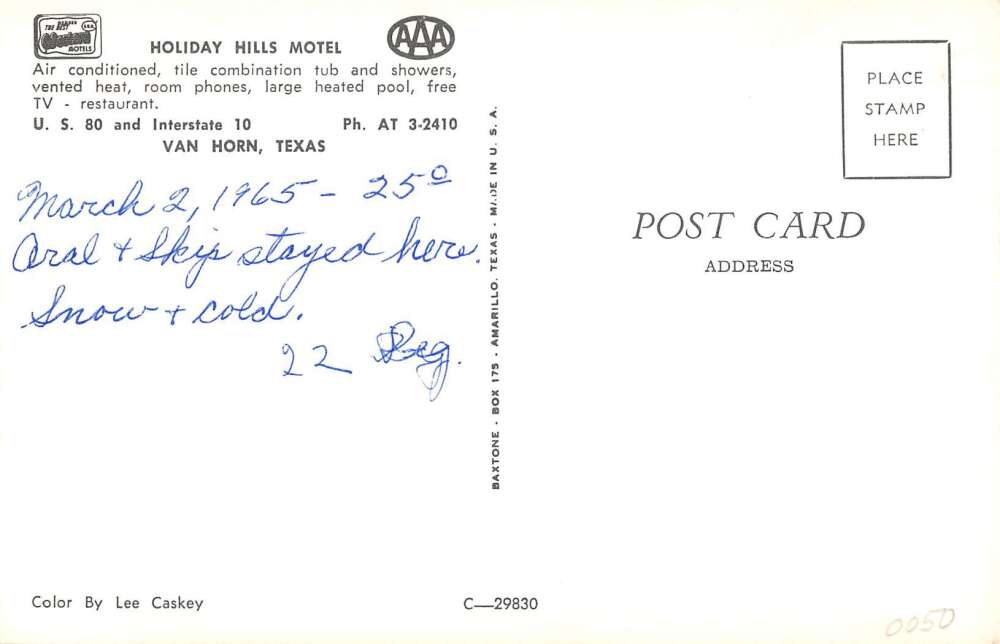 HOLIDAY HILLS MOTEL
AAA
Air conditioned, tile combination tub and showers,
vented heat, room phones, large heated pool, free
TV - restaurant.
U. S. 80 and Interstate 10 Ph. AT 3-2410
VAN HORN, TEXAS
March 2, 1965 - 25°
Oral + Skip stayed here.
Snow + cold.
22 Beg.
Color By Lee Caskey
BAXTONE - BOX 175 - AMARILLO, TEXAS - MADE IN U. S. A.
C—29830
PLACE
STAMP
HERE
POST CARD
ADDRESS
0050